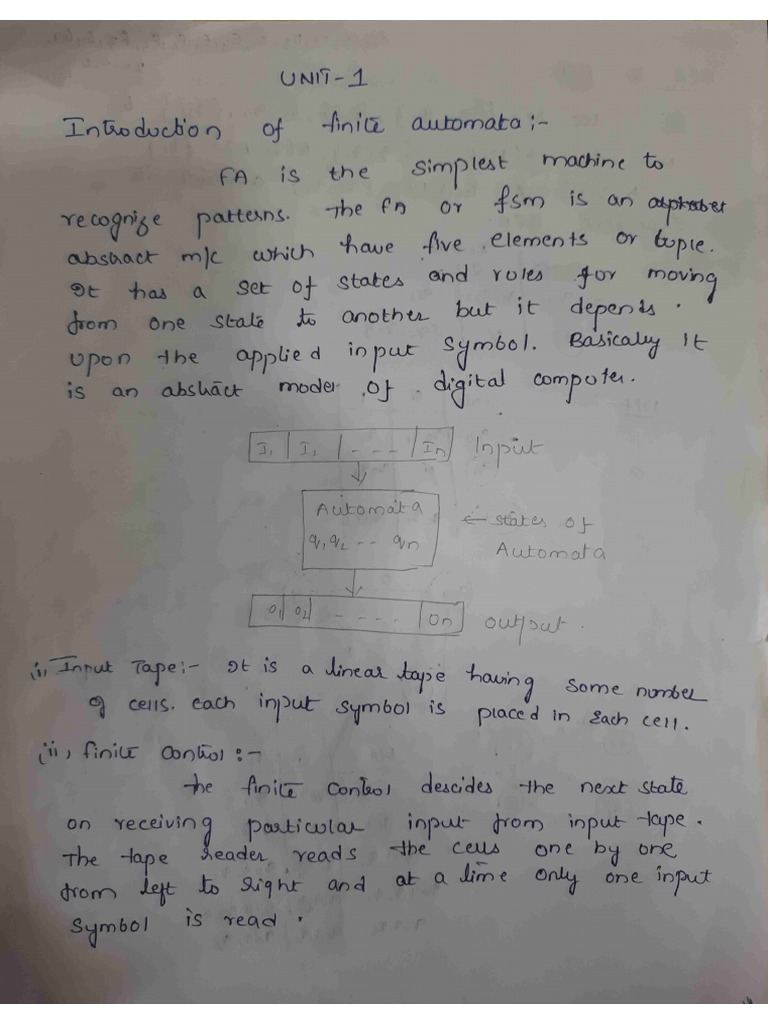 UNIT-1
Introduction of finite automata:-
FA is the simplest machine to
recognize patterns. The FA or fsm is an
abstract m/c which have five elements or tuple.
It has a set of states and rules for moving
from one state to another but it depends.
upon the applied input symbol. Basically It
is an abstract model of digital computer.
I1 I2 - - - In Input
Automata
q1 q2 -- qn
← states of
Automata
O1 O2 - - - - On output
(i) Input Tape:- It is a linear tape having some number
of cells. each input symbol is placed in Each cell.
(ii) finite control:-
The finite control descides the next state
on receiving particular input from input tape.
The tape reader reads the cells one by one
from left to right and at a time only one input
symbol is read.